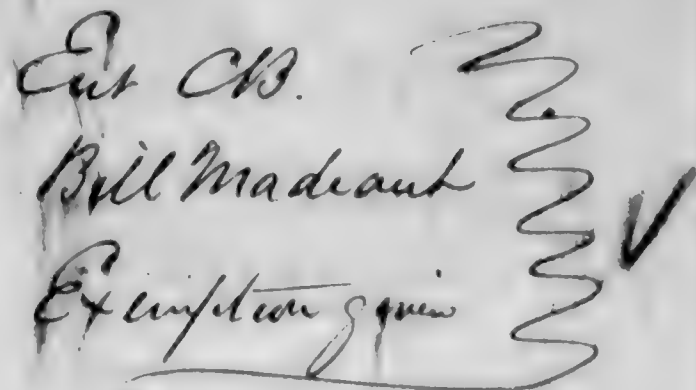 Ent CB.
Bill Made out
Exemption given